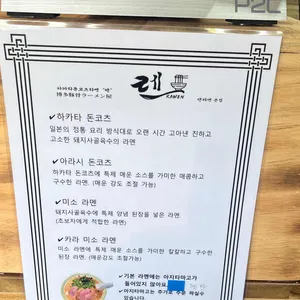 P2C
하카타돈코츠라멘 "렌"
博多豚骨ラーメン屋
RAMEN
면라멘 전문
✔하카타 돈코츠
일본의 정통 요리 방식대로 오랜 시간 고아낸 진하고
고소한 돼지사골육수의 라멘
✔아라시 돈코츠
하카타 돈코츠에 특제 매운 소스를 가미한 매콤하고
구수한 라멘. (매운 강도 조절 가능)
✔미소 라멘
돼지사골육수에 특제 양념 된장을 넣은 라멘.
(초보자에게 적합한 라멘)
✔카라 미소 라멘
미소 라멘에 특제 매운 소스를 가미한 칼칼하고 구수한
된장 라멘. (매운강도 조절 가능)
✔기본 라멘에는 아지타마고가
들어있지 않아요.
아지타마고는 추가로 주문 하실수
있습니다.